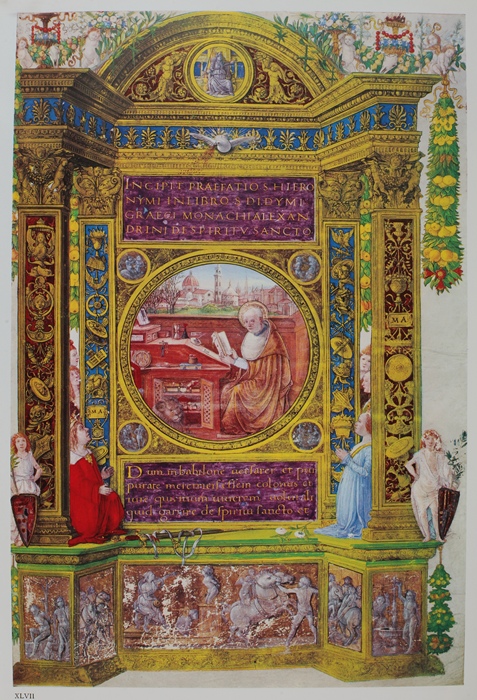 INCIPIT PRAEFATIO S. HIERO
NYMI IN LIBRO S. DIDYMI
GRAECI MONACHI ALEXAN
DRINI DE SPIRITV SANCTO
MA
MA
Dum in babilone uersarer et pur
puratae meretricis essem colonus et
iure quiritum uiuerem uolui ali
quid garrire de spiritu sancto et
XLVII